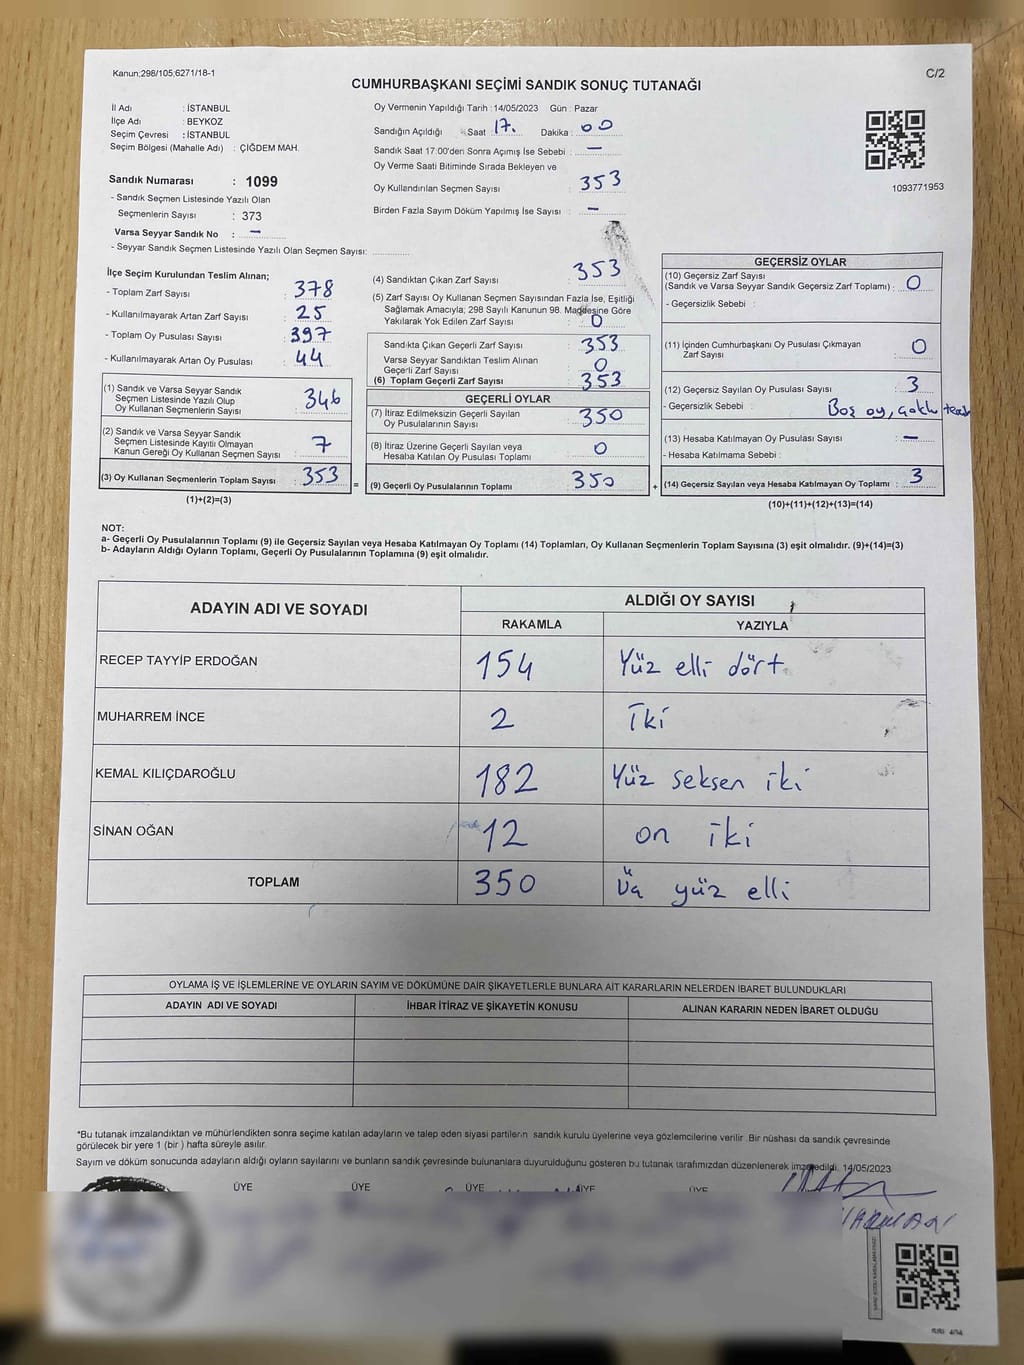 Kanun;298/105;6271/18-1
C/2
CUMHURBAŞKANI SEÇİMİ SANDIK SONUÇ TUTANAĞI
İl Adı : İSTANBUL
İlçe Adı : BEYKOZ
Seçim Çevresi : İSTANBUL
Seçim Bölgesi (Mahalle Adı) : ÇİĞDEM MAH.
Sandık Numarası : 1099
- Sandık Seçmen Listesinde Yazılı Olan
Seçmenlerin Sayısı : 373
Varsa Seyyar Sandık No : –
- Seyyar Sandık Seçmen Listesinde Yazılı Olan Seçmen Sayısı:
Oy Vermenin Yapıldığı Tarih : 14/05/2023 Gün : Pazar
Sandığın Açıldığı Saat 17. Dakika : 00
Sandık Saat 17:00'den Sonra Açımış İse Sebebi : –
Oy Verme Saati Bitiminde Sırada Bekleyen ve
Oy Kullandırılan Seçmen Sayısı : 353
Birden Fazla Sayım Döküm Yapılmış İse Sayısı : –
1093771953
İlçe Seçim Kurulundan Teslim Alınan;
- Toplam Zarf Sayısı : 378
- Kullanılmayarak Artan Zarf Sayısı : 25
- Toplam Oy Pusulası Sayısı : 397
- Kullanılmayarak Artan Oy Pusulası : 44
(1) Sandık ve Varsa Seyyar Sandık
Seçmen Listesinde Yazılı Olup
Oy Kullanan Seçmenlerin Sayısı : 346
(2) Sandık ve Varsa Seyyar Sandık
Seçmen Listesinde Kayıtlı Olmayan
Kanun Gereği Oy Kullanan Seçmen Sayısı : 7
(3) Oy Kullanan Seçmenlerin Toplam Sayısı : 353 =
(1)+(2)=(3)
(4) Sandıktan Çıkan Zarf Sayısı : 353
(5) Zarf Sayısı Oy Kullanan Seçmen Sayısından Fazla İse, Eşitliği
Sağlamak Amacıyla; 298 Sayılı Kanunun 98. Maddesine Göre
Yakılarak Yok Edilen Zarf Sayısı : 0
Sandıkta Çıkan Geçerli Zarf Sayısı : 353
Varsa Seyyar Sandıktan Teslim Alınan
Geçerli Zarf Sayısı : 0
(6) Toplam Geçerli Zarf Sayısı : 353
GEÇERLİ OYLAR
(7) İtiraz Edilmeksizin Geçerli Sayılan
Oy Pusulalarının Sayısı : 350
(8) İtiraz Üzerine Geçerli Sayılan veya
Hesaba Katılan Oy Pusulası Toplamı : 0
(9) Geçerli Oy Pusulalarının Toplamı : 350 +
GEÇERSİZ OYLAR
(10) Geçersiz Zarf Sayısı
(Sandık ve Varsa Seyyar Sandık Geçersiz Zarf Toplamı) : 0
- Geçersizlik Sebebi :
(11) İçinden Cumhurbaşkanı Oy Pusulası Çıkmayan
Zarf Sayısı : 0
(12) Geçersiz Sayılan Oy Pusulası Sayısı : 3
- Geçersizlik Sebebi : Boş oy, çoklu
(13) Hesaba Katılmayan Oy Pusulası Sayısı : –
- Hesaba Katılmama Sebebi :
(14) Geçersiz Sayılan veya Hesaba Katılmayan Oy Toplamı : 3
(10)+(11)+(12)+(13)=(14)
NOT:
a- Geçerli Oy Pusulalarının Toplamı (9) ile Geçersiz Sayılan veya Hesaba Katılmayan Oy Toplamı (14) Toplamları, Oy Kullanan Seçmenlerin Toplam Sayısına (3) eşit olmalıdır. (9)+(14)=(3)
b- Adayların Aldığı Oyların Toplamı, Geçerli Oy Pusulalarının Toplamına (9) eşit olmalıdır.
ADAYIN ADI VE SOYADI ALDIĞI OY SAYISI
RAKAMLA YAZIYLA
RECEP TAYYİP ERDOĞAN 154 Yüz elli dört
MUHARREM İNCE 2 İki
KEMAL KILIÇDAROĞLU 182 Yüz seksen iki
SİNAN OĞAN 12 on iki
TOPLAM 350 Üç yüz elli
OYLAMA İŞ VE İŞLEMLERİNE VE OYLARIN SAYIM VE DÖKÜMÜNE DAİR ŞİKAYETLERLE BUNLARA AİT KARARLARIN NELERDEN İBARET BULUNDUKLARI
ADAYIN ADI VE SOYADI İHBAR İTİRAZ VE ŞİKAYETİN KONUSU ALINAN KARARIN NEDEN İBARET OLDUĞU
*Bu tutanak imzalandıktan ve mühürlendikten sonra seçime katılan adayların ve talep eden siyasi partilerin sandık kurulu üyelerine veya gözlemcilerine verilir. Bir nüshası da sandık çevresinde
görülecek bir yere 1 (bir ) hafta süreyle asılır.
Sayım ve döküm sonucunda adayların aldığı oyların sayılarını ve bunların sandık çevresinde bulunanlara duyurulduğunu gösteren bu tutanak tarafımızdan düzenlenerek imza edildi. 14/05/2023
ÜYE ÜYE ÜYE ÜYE ÜYE